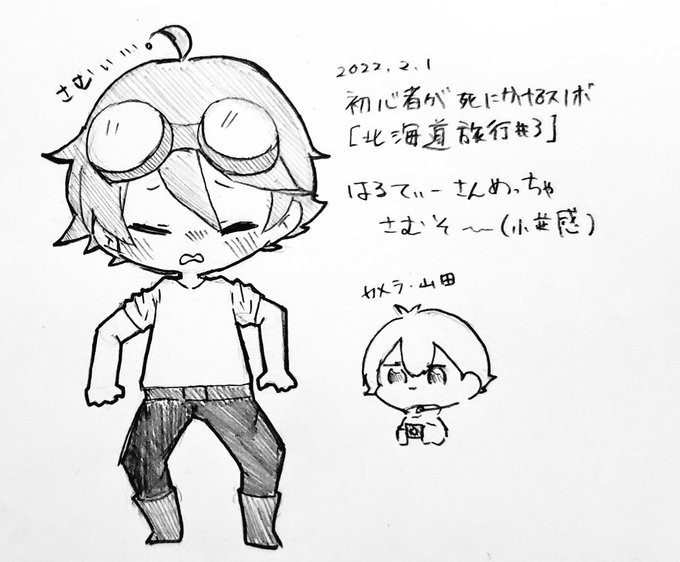 さむぃ…。
2022.2.1
初心者が死にかけるスノボ
[北海道旅行#3]
はるてぃーさんめっちゃ
さむそ〜(小並感)
カメラ・山田